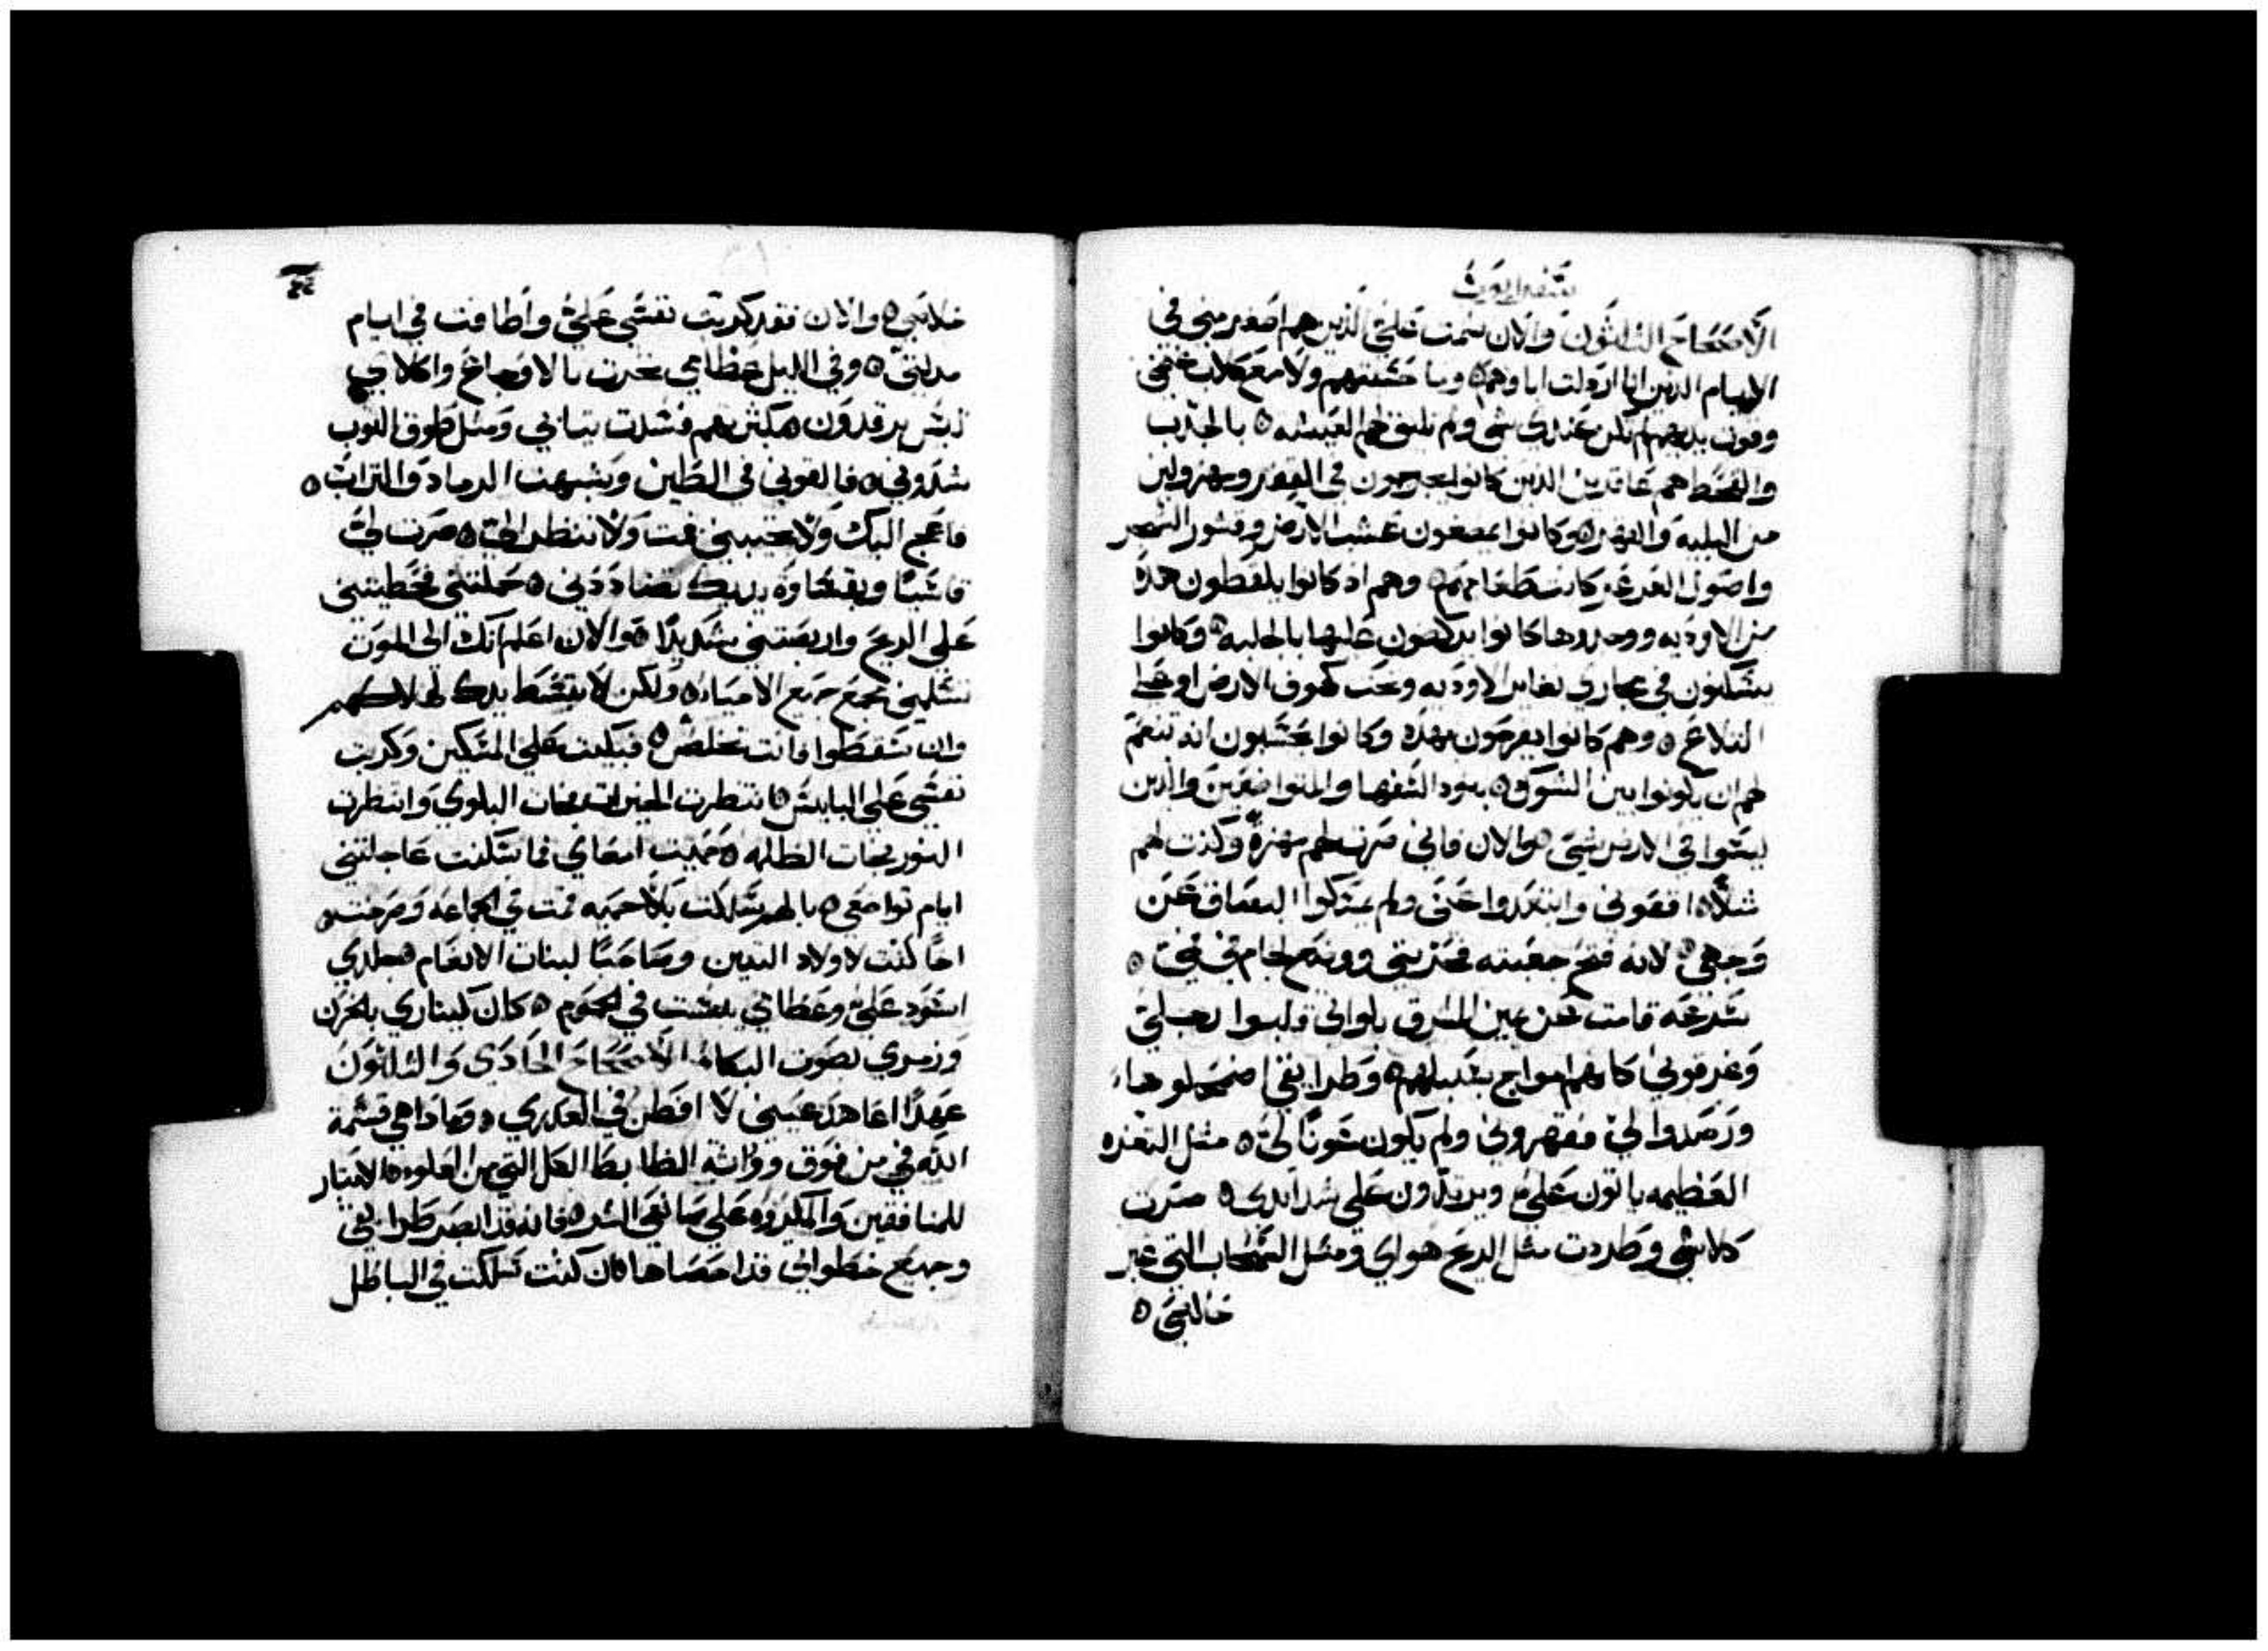 سفر ايوب
الاصحاح الثلثون والان شمت علي الذين هم اصغر مني في
الايام الدين انا اردلت اباوهم ه وما حسبتهم ولا مع كلاب غنمي
وقوت يديهم لم تكن عندي شي ولم تليق لهم العيشه ه بالجدب
والقحط هم عاقدين الدين كانوا يعدجون في القفر ومهزولين
من البليه والفقر ه وكانوا يمضغون عشب الارض وقشور الشجر
واصول العرعر كانت طعامهم ه وهم اد كانوا يلقطون هده
من الاوديه ووجدوها كانوا يركضون عليها بالجلبه ه وكانوا
يسكنون في مجاري نغاير الاوديه وتحت كهوف الارض او على
التلاع ه وهم كانوا يفرحون بهده وكانوا يحسبون انه تنعم
لهم ان يكونوا بين الشوك ه بنود السفها والمتواضعين والدين
ليسوا في الارض شي ه والان فاني صرت لهم مهزه وكنت لهم
مثلا ه اقفوني وابتعدوا عني ولم يتركوا البصاق عن
وجهي ه لانه فتح جعبته فحزنني ووضع لجام في فمي ه
بسرعه قامت عن يمين المشرق بلواي قلبوا رجلي
وغرقوني كانهم امواج بسبيلهم ه وطرايقي اضمحلوها
ورصدوا لي فقهروني ولم يكون عونا لي ه مثل التغره
العظيمه ياتون علي ويرتدون على شدايدي ه صرت
كلاشي وطردت مثل الريح هواي ومثل السحاب التي عبر
خلاصي ه
خلاصي ه والان فقد كربت نفسي علي واطافت في ايام
مدلتي ه وفي الليل عظامي نخرت بالاوجاع واكلاي
ليس يرقدون ه بكثرهم فسدت تيابي ومثل طوق التوب
شدوني ه فالقوني في الطين وشبهت الرماد والتراب ه
فاعج اليك ولا تجيبني قمت ولا تنظر الي ه صرت لي
قاسيا وبقساوة يديك تضاددني ه حملتني فحطيتني
على الريح واربصتني شديدا ه والان اعلم انك الى الموت
تسلمني مجمع جميع الاحيا ه ولكن لا تبسط يدك لهلاكهم
وان سقطوا فانت تخلص ه فبكيت على المسكين وكربت
نفسي على البايس ه انتظرت الخيرات فجات البلوى وانتظرت
النور فجات الظلمه ه حميت امعاي فما سكنت عاجلتني
ايام تواضعي ه بالهم سلكت بلا حميه قمت في الجماعه وصرخت ه
اخا كنت لاولاد التنين وصاحبا لبنات الانعام ه جلدي
اسود علي وعظامي يبست في الحموم ه كان كيناري بالحزن
وزمري بصوت البكا ه الاصحاح الحادي والثلثون
عهدا اعاهد عيني لا افطن في العدري ه وهاداهي قسمة
الله في من فوق ووراثه الضابط الكل التي من العلو ه الانتيار
للمنافقين والمكروه على صانعي الشر ه فانه قد ابصر طرايقي
وجميع خطواتي قد احصاها ه ان كنت سلكت في الباطل